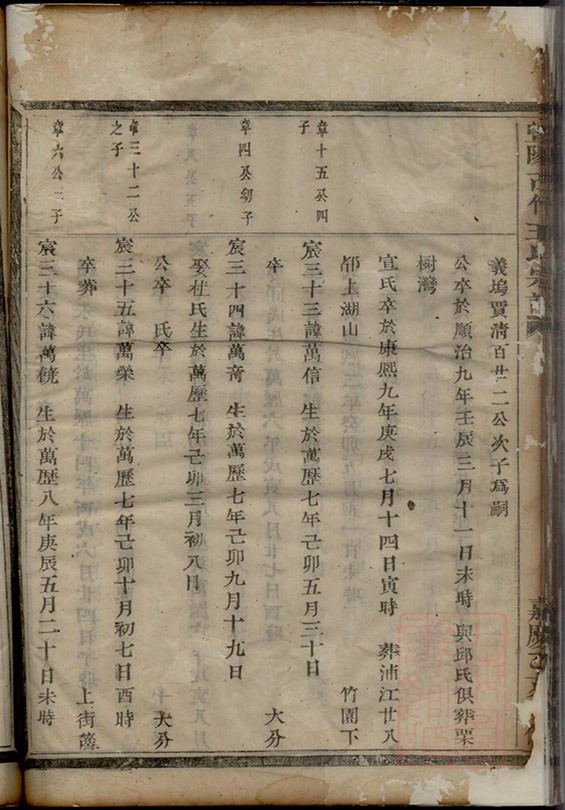 義塢賈淸百廿二公次子爲嗣
公卒於順治九年壬辰三月十一日未時 與邱氏俱葬栗
樹灣
宣氏卒於康熙九年庚戌七月十四日寅時 葬浦江廿八
都上湖山 竹園下
章十五公四
子
宸三十三諱萬信 生於萬歷七年己卯五月三十日
卒 大分
章四公幼子
宸三十四諱萬 生於萬歷七年己卯九月十九日
娶杜氏生於萬歷七年己卯三月初八日
公卒 氏卒 大分
章三十二公
之子
宸三十五諱萬榮 生於萬歷七年己卯十月初七日酉時
卒葬 上街
章六公三子
宸三十六諱萬 生於萬歷八年庚辰五月二十日未時
王氏宗譜
嘉慶